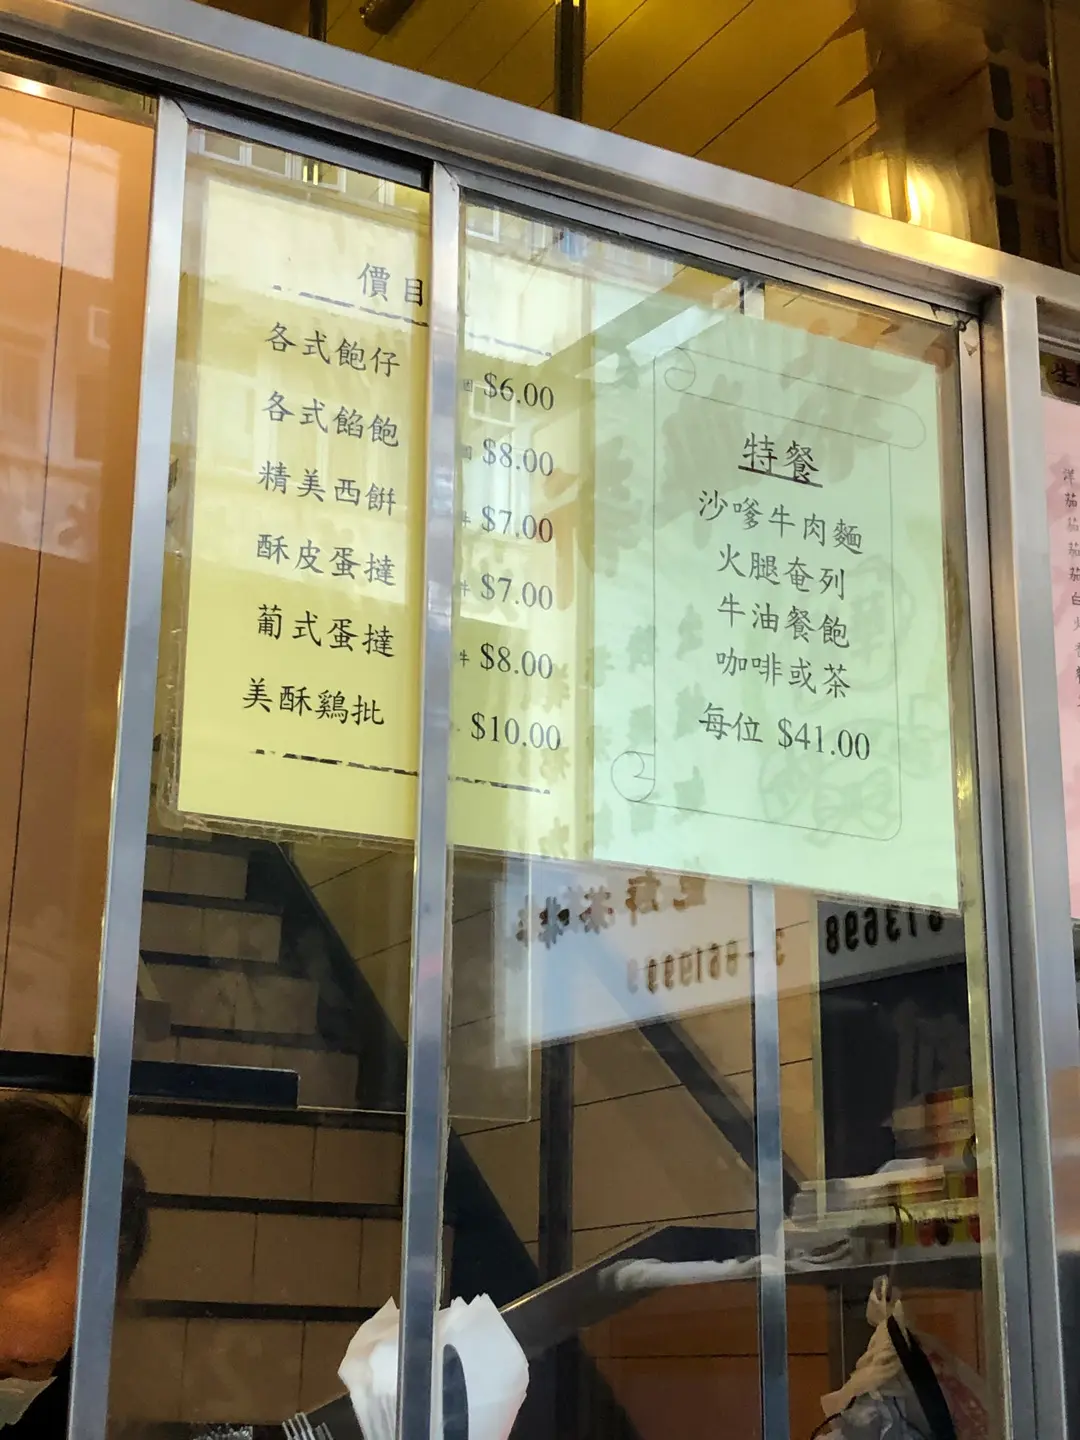 價目
各式飽仔 $6.00
各式餡飽 $8.00
精美西餅 $7.00
酥皮蛋撻 $7.00
葡式蛋撻 $8.00
美酥鷄批 $10.00
特餐
沙嗲牛肉麵
火腿奄列
牛油餐飽
咖啡或茶
每位 $41.00